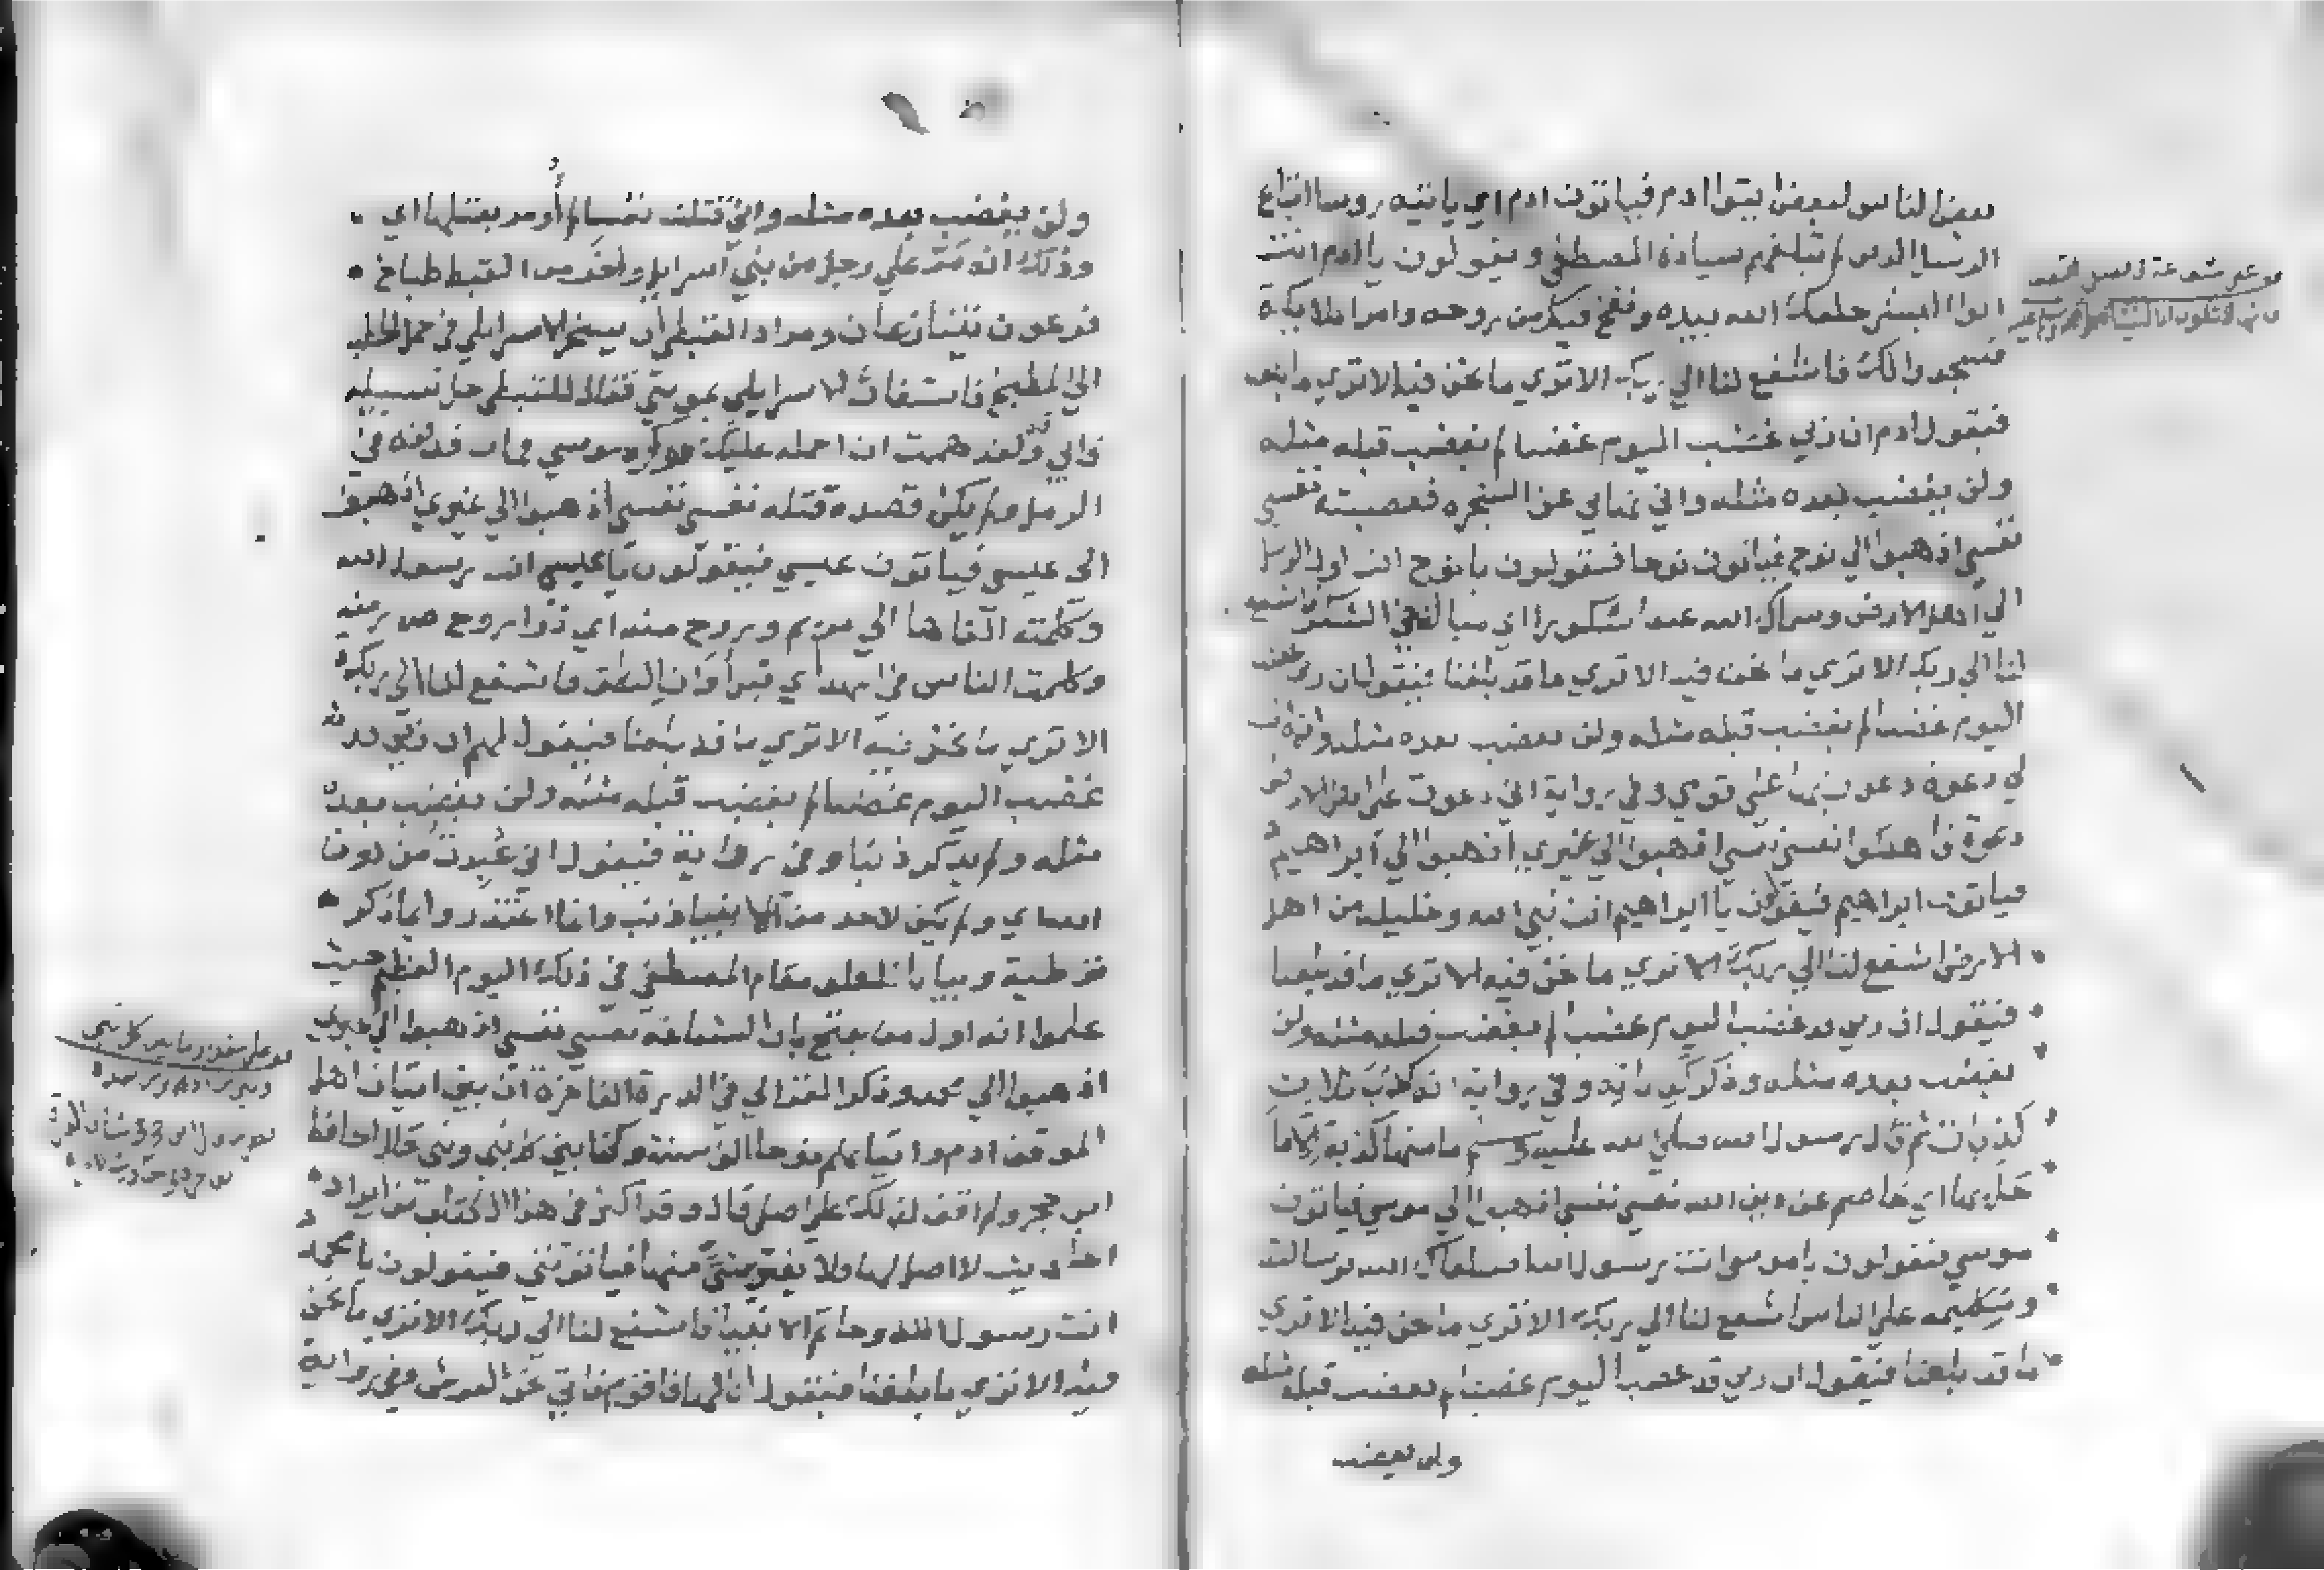 بعض الناس لبعض ايتوا ادم فياتون ادم اي ياتيه روسا اتباع
الرسل الذين لم تبلغهم سيادة المصطفي ويقولون يا ادم انت
ابوا البشر خلقك الله بيده ونفخ فيك من روحه وامر الملايكة
فسجدوا لك فاشفع لنا الي ربك الا تري ما نحن فيه الا تري ما بلغنا
فيقول ادم ان ربي غضب اليوم غضبا لم يغضب قبله مثله
ولن يغضب بعده مثله واني نهاني عن الشجره فعصيته نفسي
نفسي اذهبوا الي نوح فياتون نوحا فيقولون يا نوح انت اول الرسل
الي اهل الارض وسماك الله عبدا شكورا اي مبالغا في الشكر فاشفع
لنا الي ربك الا تري ما نحن فيه الا تري ما قد بلغنا فيقول ان ربي غضب
اليوم غضبا لم يغضب قبله مثله ولن يغضب بعده مثله وانه كانت
لي دعوة دعوت بها علي قومي وفي رواية اني دعوت علي اهل الارض
دعوة فاهلكوا نفسي نفسي اذهبوا الي غيري اذهبوا الي ابراهيم
فياتون ابراهيم فيقولون يا ابراهيم انت نبي الله وخليله من اهل
الارض اشفع لنا الي ربك الا تري ما نحن فيه الا تري ما قد بلغنا
فيقول ان ربي قد غضب اليوم غضبا لم يغضب قبله مثله ولن
يغضب بعده مثله وذكر كذباته وفي رواية انه كذب ثلاث
كذبات ثم قال رسول الله صلي الله عليه وسلم ما منها كذبة الا ما
حل بها اي خاصم عن دين الله نفسي نفسي اذهبوا الي موسي فياتون
موسي فيقولون يا موسي انت رسول الله فضلك الله برسالته
وبتكليمه علي الناس اشفع لنا الي ربك الا تري ما نحن فيه الا تري
ما قد بلغنا فيقول ان ربي قد غضب اليوم غضبا لم يغضب قبله مثله
ولن يغضب
ولن يغضب بعده مثله واني قتلت نفسا لم أُومر بقتلها اي
وذلك انه مَرَّ علي رجل من بني اسرايل واخر من القبط طباخ
فرعون يتنازعان ومراد القبطي ان يسخر الاسرايلي في حمل الحطب
الي المطبخ فاستغاث الاسرايلي بموسي فقال للقبطي خل سبيله
فابي وقد هممت ان احمله عليك فوكزه موسي فمات فدفنه في
الرمل ولم يكن قصده قتله نفسي نفسي اذهبوا الي غيري اذهبوا
الي عيسي فياتون عيسي فيقولون يا عيسي انت رسول الله
وكلمته القاها الي مريم وروح منه اي ذوا روح من عنده
وكلمت الناس في المهد اي قبل اوان النطق فاشفع لنا الي ربك
الا تري ما نحن فيه الا تري ما قد بلغنا فيقول لهم ان ربي قد
غضب اليوم غضبا لم يغضب قبله مثله ولن يغضب بعده
مثله ولم يذكر ذنبا وفي رواية فيقول اني عُبِدتُ من دون
الله اي ولم يكن لاحد من الانبيا ذنب وانما اعتذروا بما ذكر
توطية وبيانا لعلو مقام المصطفي في ذلك اليوم العظيم حيث
علموا انه اول من يفتح باب الشفاعة نفسي نفسي اذهبوا الي غيري
اذهبوا الي محمد وذكر الغزالي في الدرة الفاخرة ان بين اتيان اهل
الموقف ادم واتيانهم نوحا الف سنة وكذا بين كل نبي ونبي قال الحافظ
ابن حجر ولم اقف لذلك علي اصل قال وقد اكثر في هذا الكتاب من ايراد
احاديث لا اصل لها فلا يغتر بشيء منها فياتونني فيقولون يا محمد
انت رسول الله وخاتم الانبيا فاشفع لنا الي ربك الا تري ما نحن
فيه الا تري ما بلغنا فيقول انا لها فاقوم فاتي تحت العرش وفي رواية